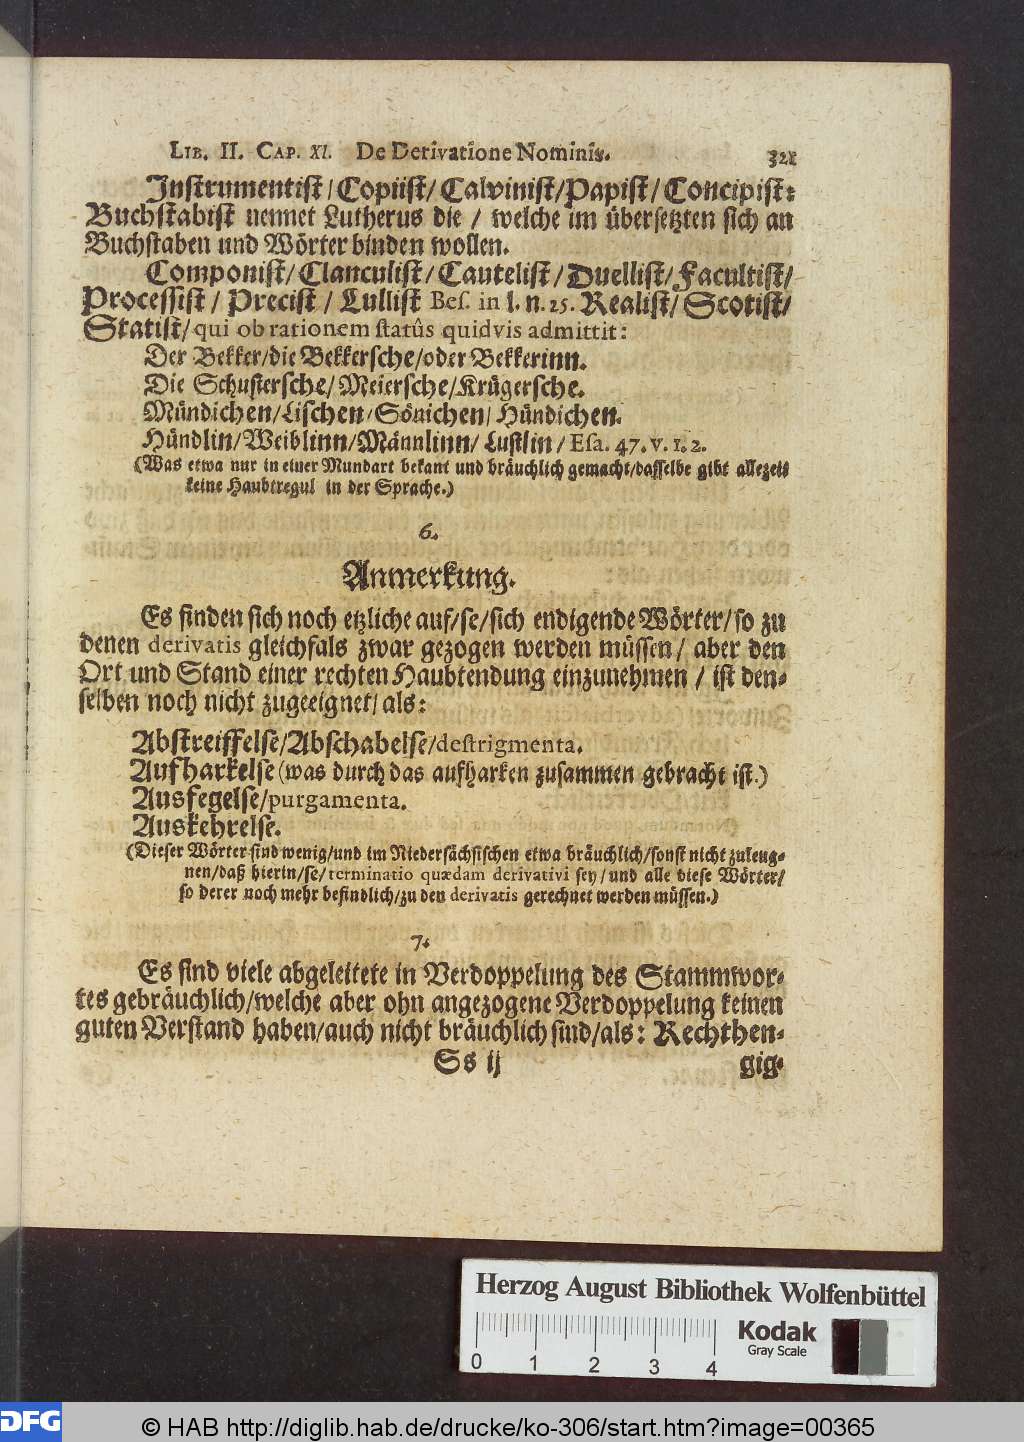 LIB. II. CAP. XI. De Derivatione Nominis. 321
Instrumentist / Copiist / Calvinist / Papist / Concipist:
Buchstabist nennet Lutherus die / welche im übersetzten sich an
Buchstaben und Wörter binden wollen.
Componist / Clanculist / Cautelist / Duellist / Facultist /
Processist / Precist / Lullist Bes. in l. n. 25. Realist / Scotist /
Statist / qui ob rationem statûs quidvis admittit:
Der Bekker / die Bekkersche / oder Bekkerinn.
Die Schustersche / Meiersche / Krügersche.
Mündichen / Lischen / Sönichen / Hündichen.
Hündlin / Weiblinn / Männlinn / Lustlin / Esa. 47. v. 1. 2.
(Was etwa nur in einer Mundart bekant und bräuchlich gemacht / dasselbe gibt allezeit
keine Haubtregul in der Sprache.)
6.
Anmerkung.
Es finden sich noch etzliche auf / se / sich endigende Wörter / so zu
denen derivatis gleichfals zwar gezogen werden müssen / aber den
Ort und Stand einer rechten Haubtendung einzunehmen / ist den-
selben noch nicht zugeeignet / als:
Abstreiffelse / Abschabelse / destrigmenta.
Aufharkelse (was durch das aufharken zusammen gebracht ist.)
Ausfegelse / purgamenta.
Auskehrelse.
(Dieser Wörter sind wenig / und im Niedersächsischen etwa bräuchlich / sonst nicht zuleug-
nen / daß hierin / se / terminatio quædam derivativi sey / und alle diese Wörter /
so derer noch mehr befindlich / zu den derivatis gerechnet werden müssen.)
7.
Es sind viele abgeleitete in Verdoppelung des Stammwor-
tes gebräuchlich / welche aber ohn angezogene Verdoppelung keinen
guten Verstand haben / auch nicht bräuchlich sind / als: Rechthen-
Ss ij gig-
Herzog August Bibliothek Wolfenbüttel
Kodak
Gray Scale
0 1 2 3 4
DFG © HAB http://diglib.hab.de/drucke/ko-306/start.htm?image=00365